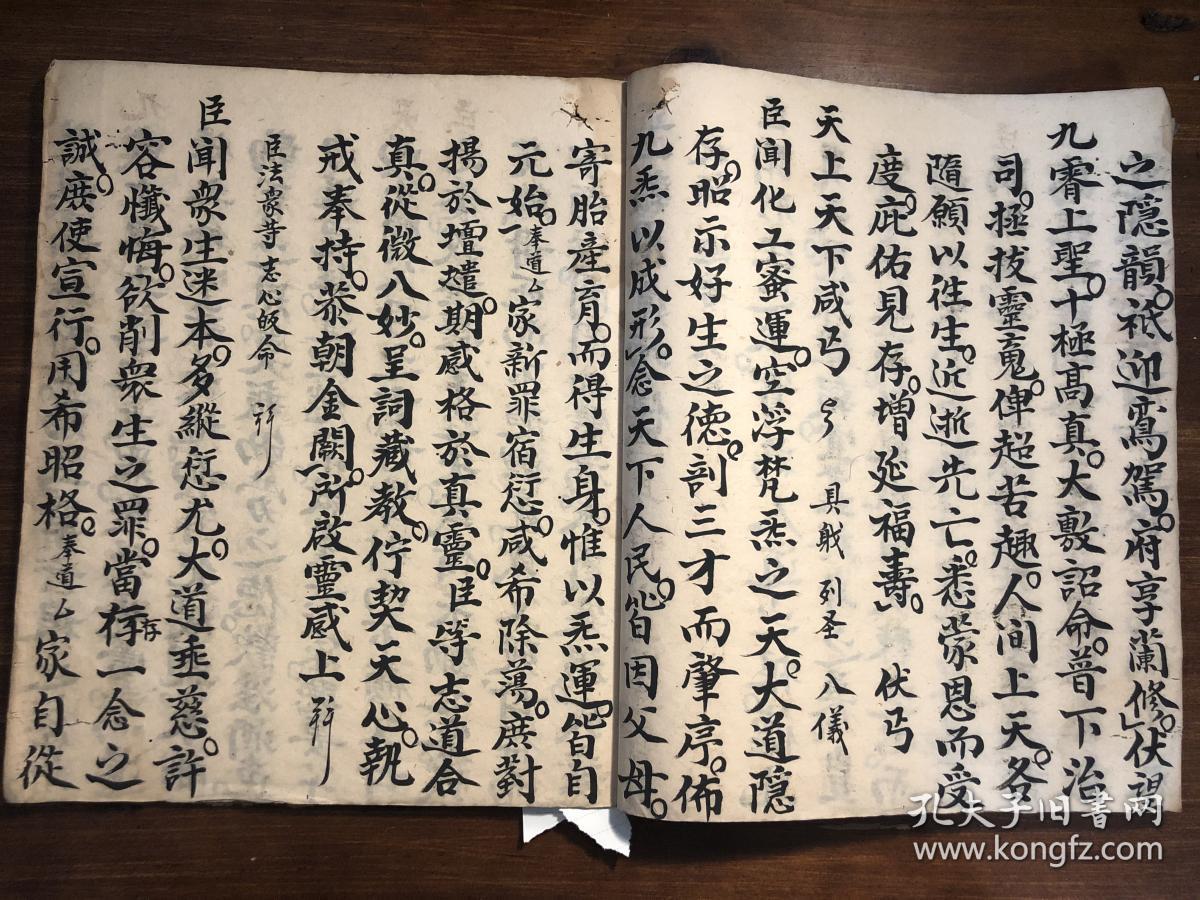 之隱韻。祇迎鸞駕。府享蘭修。伏望
九霄上聖。十極高真。大敷詔命。普下治
司。拯拔靈䰟。俾超苦趣。人间上天。各
隨願以徃生。近逝先亡。悉蒙恩而受
度。庇佑見存。增延福壽。 伏丐
天上天下咸丐 具戢列圣 八儀
臣闻化工蜜運。空浮梵炁之天。大道隐
存。昭示好生之德。剖三才而肇序。佈
九炁以成形。念天下人民。皆因父母。
寄胎產育。而得生身。惟以炁運。皆自
元始。奉道厶家新罪宿愆。咸希除蕩。庶對
揚於壇墠。期感格於真靈。臣等志道合
真。從微八妙。呈詞藏教。佇契天心。執
戒奉持。恭朝金闕。所啟靈感上
臣法衆等志心皈命
臣闻衆生迷本。多縱愆尤。大道垂慈。許
容懺悔。欲削衆生之罪。當存一念之
誠。庶使宣行。用希昭格。奉道厶家自從
孔夫子旧书网
www.kongfz.com